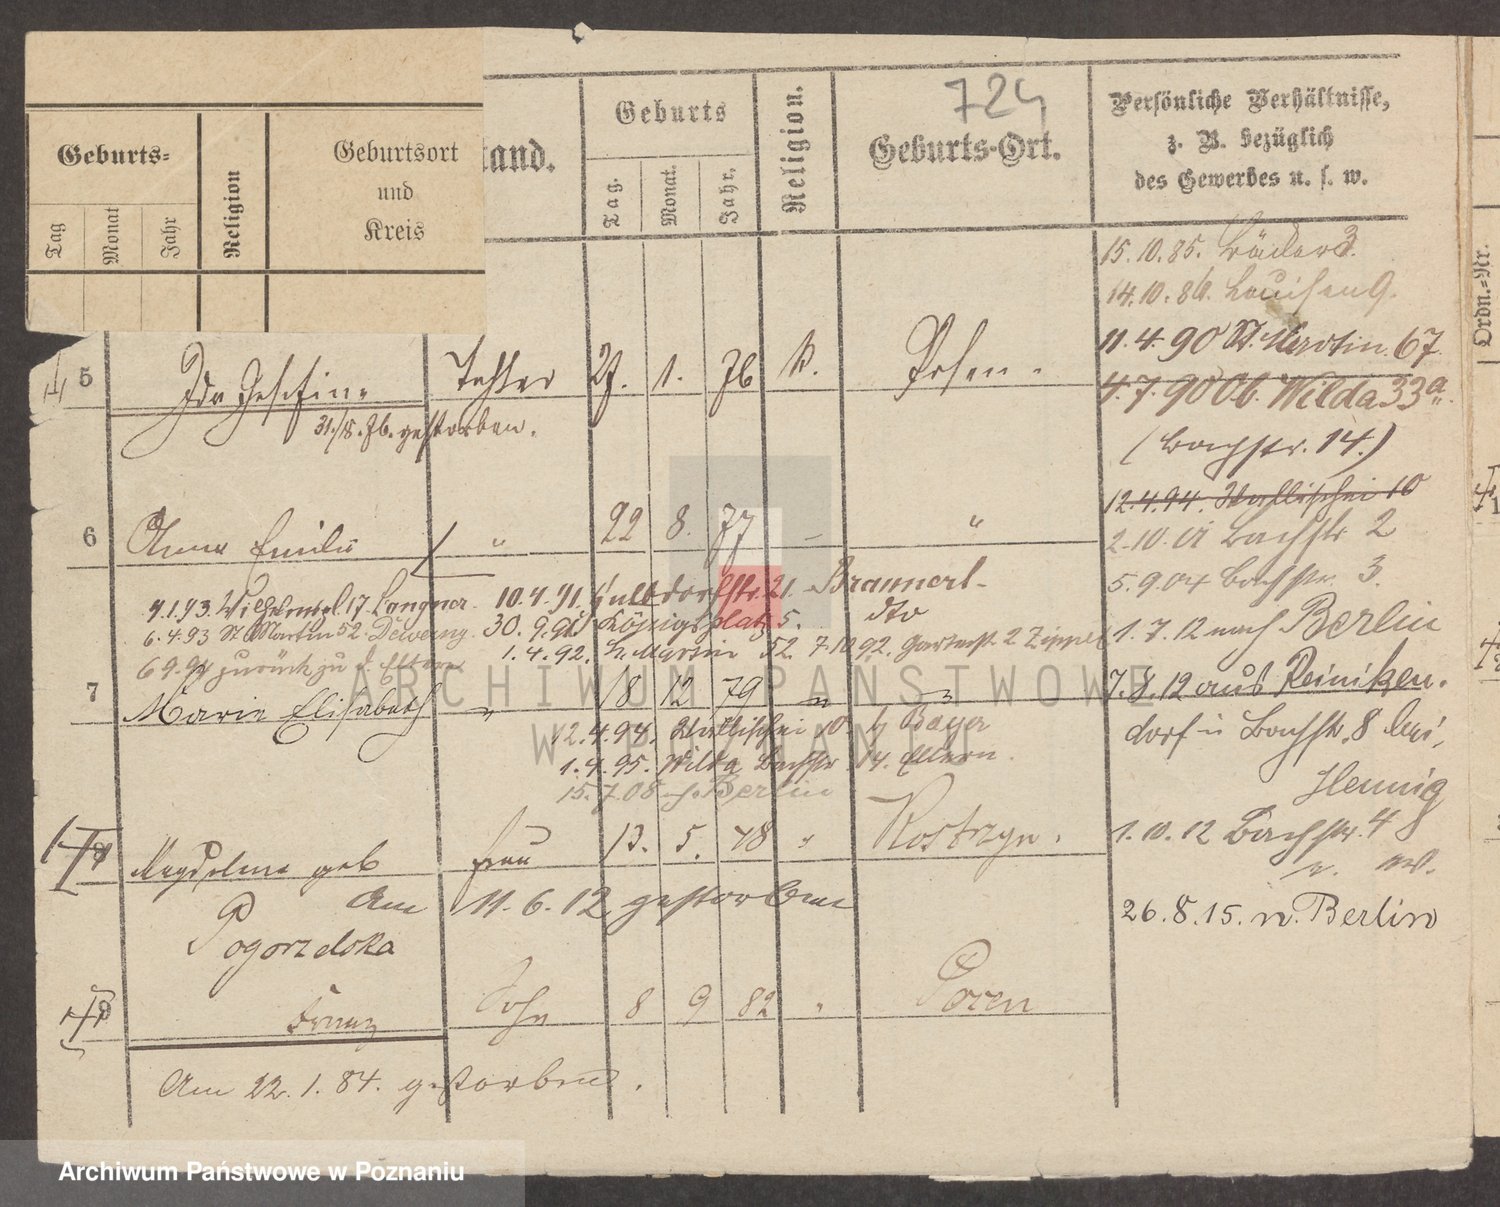 724
Geburts=
Tag
Monat
Jahr
Religion
Geburtsort
und
Kreis
tand.
Geburts
Tag.
Monat.
Jahr.
Religion.
Geburts-Ort.
Persönliche Verhältnisse,
z. B. bezüglich
des Gewerbes u. s. w.
15.10.85. 3.
14.10.86. 9.
11.4.90 St. Martin. 67.
4.7.90 Ob. Wilda 33a.
(Bachstr. 14.)
12.4.94. Wallischei 10
2.10.01 Bachstr 2
5.9.04 Bachstr. 3.
1.7.12 nach Berlin
7.8.12 aus Reiniken.
dorf Bachstr. 8 bei
Hennig
1.10.12 Bachstr. 4
26.8.15. n. Berlin
5 Ida Josefine Tochter 27. 1. 76 k. Posen.
gestorben.
6 Anna Emilie " 22 8. 77 "
4.1.93. 17. Langner. 10.4.91. 21. Braunert
6.4.93 St Martin 52. 30.9.91. Königsplatz 5. dto
6.9.94 zurück zu d. Eltern 1.4.92. St. Martin 52. 7.10.92. Gartenstr. 2
7 Marie Elisabeth " 18 12 79
12.4.94. Wallischei 10. b. Bayer
1.4.95. Wilda Bachstr 14. Eltern.
15.7.08 n. Berlin
Magdalena geb Frau 13. 5. 48 " Kostrzyn.
Am 11.6.12 gestorben
Pogorzelska
Franz Sohn 8 9 82 " Posen
Am 22.1.84. gestorben.
Ordn.=Nr.
ARCHIWUM PAŃSTWOWE
W POZNANIU
Archiwum Państwowe w Poznaniu